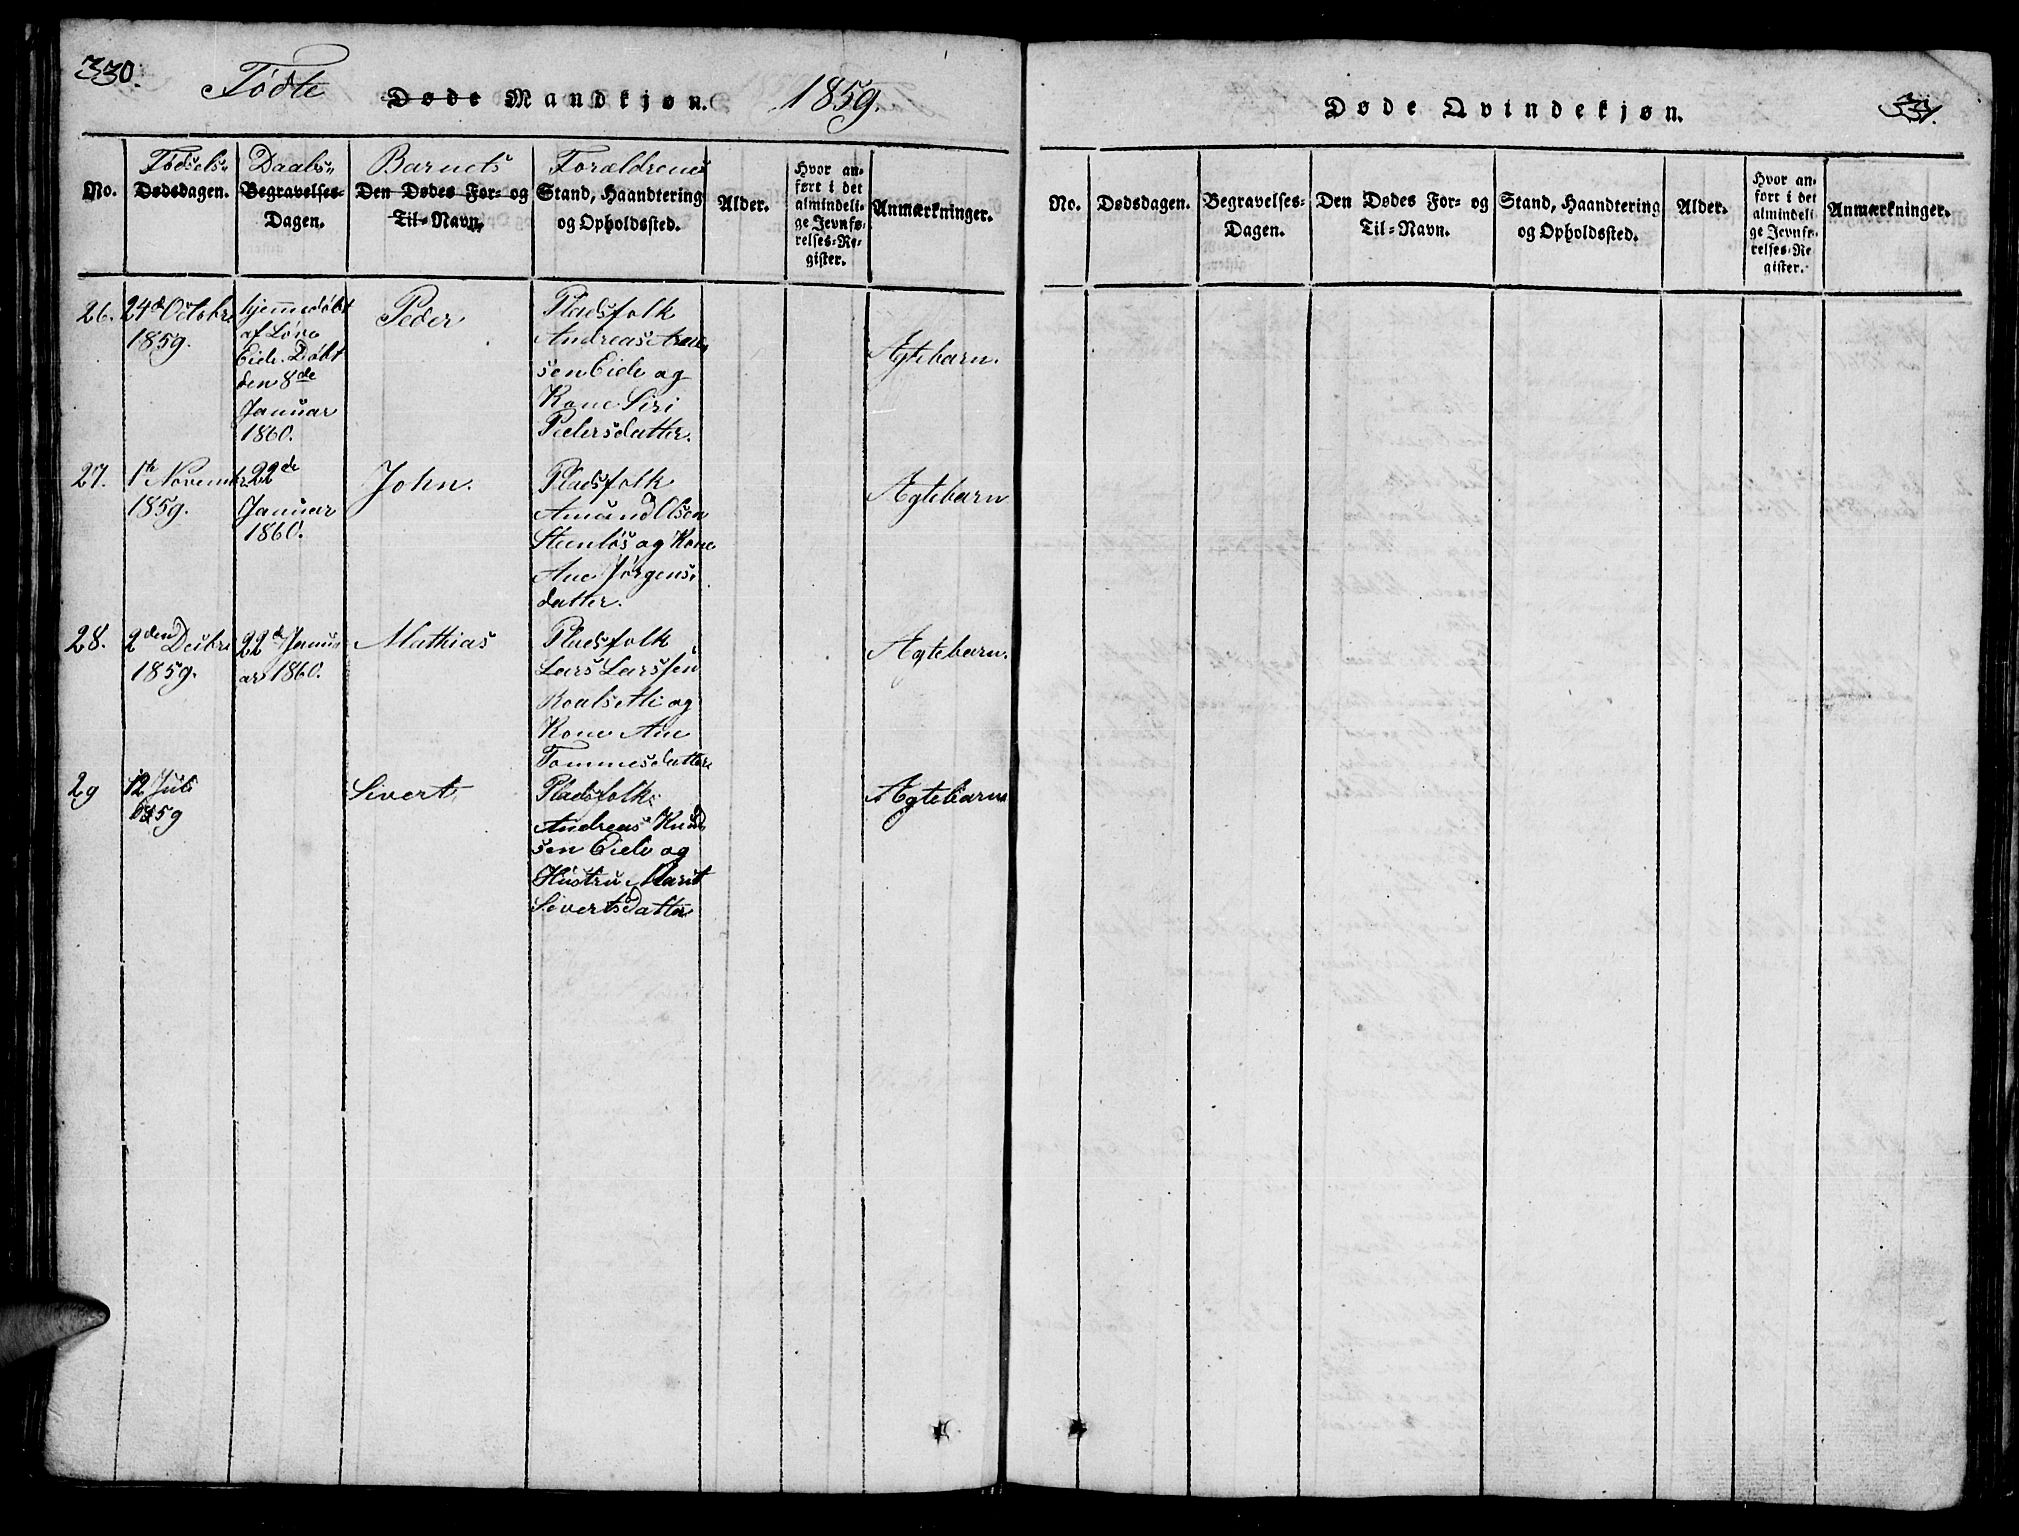 330.
Tödte
Døde Mandkjøn.
1859.
Tödsels-
Daabs-
Barnets
Forældrenes
No.
Dødsdagen.
Begravelses-
Dagen.
Den Dødes For- og
Til-Navn.
Stand, Haandtering
og Opholdssted.
Alder.
Hvor an-
ført i det
almindeli-
ge Jevnfø-
relses-Re-
gister.
Anmærkninger.
26.
24d Octobr
1859.
hjemmedöbt
af Löve
Eide. Döbt
den 8de
Januar
1860.
Peder
Pladsfolk
Andreas Arne-
sen Eide og
Kone Siri
Pedersdatter.
Ægtebarn.
27.
1te Novembr
1859.
22de
Januar
1860.
John.
Pladsfolk
Amund Olsen
Steenlös og Kone
Ane Jörgens-
datter.
Ægtebarn
28.
2den Decbr
1859.
22d Janu-
ar 1860.
Mathias
Pladsfolk
Lars Larssen
Roalset og
Kone Ane
Tommesdatter
Ægtebarn.
29
12 Juli
1859
Sivert
Pladsfolk
Andreas Knud
sen Eide og
Hustru Marit
Sivertsdatter
Ægtebarn
Døde Qvindekjøn.
331.
No.
Dødsdagen.
Begravelses-
Dagen.
Den Dødes For- og
Til-Navn.
Stand, Haandtering
og Opholdssted.
Alder.
Hvor an-
ført i det
almindeli-
ge Jevnfø-
relses-Re-
gister.
Anmærkninger.